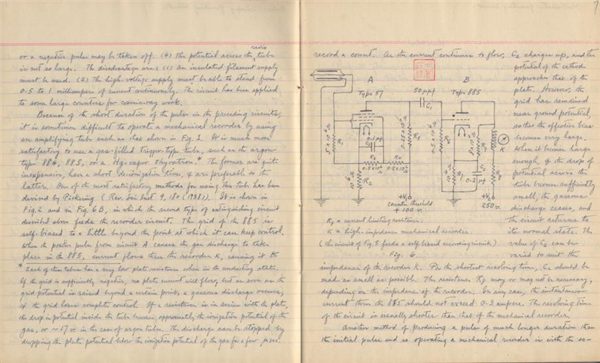 or a negative pulse may be taken off. (4) The potential across the tube
is not so large. The disadvantages are: (1) An insulated filament supply
must be used. (2) The high voltage supply must be able to stand from
0.5 to 1 milliampere of current continuously. The circuit has been applied
to some large counters for cosmic ray work.
Because of the short duration of the pulses in the preceding circuits,
it is sometimes difficult to operate a mechanical recorder by using
an amplifying tube such as that shown in Fig. 2. It is much more
satisfactory to use a gas-filled trigger-type tube, such as the argon
type 884, 885, or a Hg-vapor thyratron.* The former are quite
inexpensive, have a short deionization time, & are preferable to the
latter. One of the most satisfactory methods for using this tube has been
devised by Pickering (Rev. Sci. Inst. 9, 180 (1938)). It is shown in
Fig. 6 and in Fig. 6B, in which the second type of extinguishing circuit
described above feeds the recorder circuit. The grid of the 885 is
self-biased to a little beyond the point at which it can keep control.
When a positive pulse from circuit A causes the gas discharge to take
place in the 885, current flows thru the recorder K, causing it to
* Each of these tubes has a very low plate resistance when in the conducting state.
If the grid is sufficiently negative, no plate current will flow, but as soon as the
grid potential is raised beyond a certain point, a gaseous discharge occurs,
& the grid loses complete control. If a resistance is in series with the plate,
the drop in potential inside the tube becomes approximately the ionization potential of the
gas, or ~17 v in the case of argon tubes. The discharge can be stopped by
dropping the plate potential below the ionization potential of the gas for a few μsec.
7
record a count. As the current continues to flow, C₂ charges up, and the
potential of the cathode
approaches that of the
plate. However, the
grid has remained
near ground potential,
so that the effective bias
becomes very large.
When it becomes large
enough, & the drop of
potential across the
tube becomes sufficiently
small, the gaseous
discharge ceases, and
the circuit returns to
its normal state. The
value of R₇ can be
varied to suit the
A
Type 57
50 μμf
C₁
B
Type 885
K
Counter threshold
+ 100 v
250 v.
R₇ = current limiting resistance
K = high-impedance mechanical recorder
(the circuit of Fig. 5 feeds a self-biased recording circuit)
Fig. 6
impedance of the recorder K. For the shortest resolving time, C₂ should be
made as small as possible. The resistance R₇ may or may not be necessary,
depending on the impedance of the recorder. In any case, the instantaneous
current thru the 885 should not exceed 0.3 ampere. The resolving time
of the circuit is usually shorter than that of the mechanical recorder.
Another method of producing a pulse of much longer duration than
the initial pulse and so operating a mechanical recorder is with the so-